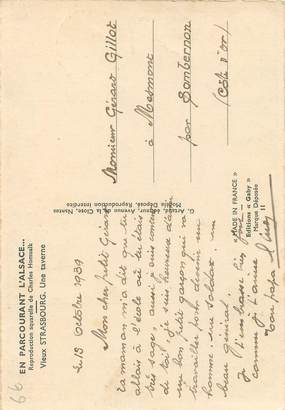 EN PARCOURANT L'ALSACE...
Reproduction aquarelle de Charles Homualk
Vieux STRASBOURG. Une taverne
Le 13 octobre 1939
Mon cher petit Gérard
Ta maman m'a dit que tu
allais à l'école où tu étais
très sage, aussi je suis content
de toi, je suis heureux d'avoir
un bon petit garçon qui va
travailler pour devenir un
homme, un soldat, un
beau Général.
Je t'embrasse bien fort
comme je t'aime
Ton papa
Artaud, éditeur, Avenue de la Close, Nantes
Modèle Déposé. Reproduction Interdite
« MADE IN FRANCE »
Editions « Gaby »
Marque Déposée
11
Monsieur Gérard Gillot
à Mesmont
par Sombernon
(Côte d'Or)
66